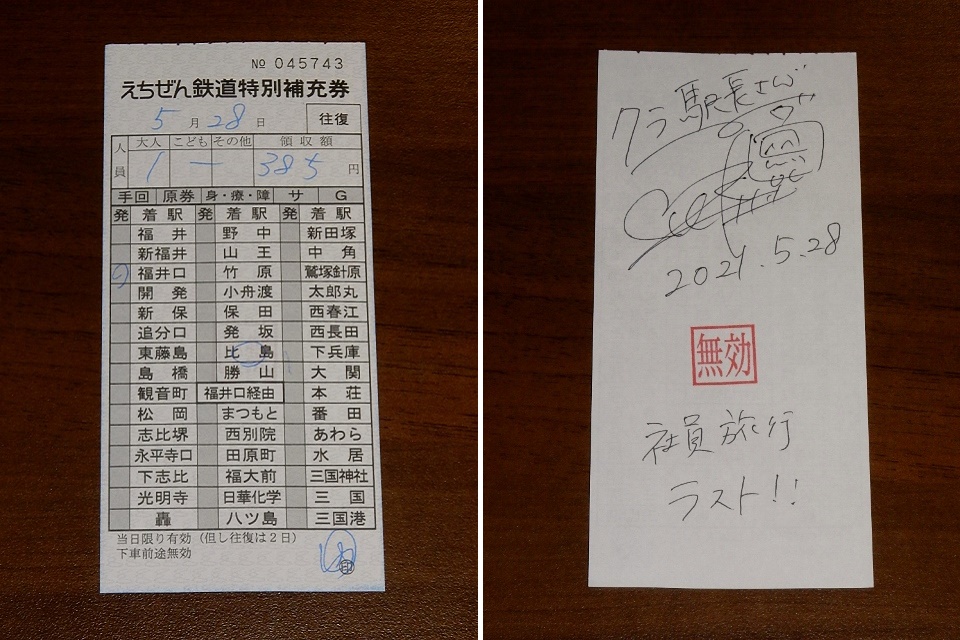 № 045743
えちぜん鉄道特別補充券
5月28日 往復
人員 大人 こども その他 領収額
1 ー 385円
手回 原券 身・療・障 サ G
発 着駅 発 着駅 発 着駅
福井 野中 新田塚
新福井 山王 中角
福井口 竹原 鷲塚針原
開発 小舟渡 太郎丸
新保 保田 西春江
追分口 発坂 西長田
東藤島 比島 下兵庫
島橋 勝山 大関
観音町 福井口経由 本荘
松岡 まつもと 番田
志比堺 西別院 あわら
永平寺口 田原町 水居
下志比 福大前 三国神社
光明寺 日華化学 三国
轟 八ツ島 三国港
当日限り有効(但し往復は2日)
下車前途無効
印
クラ駅長さん
2021.5.28
無効
社員旅行
ラスト!!